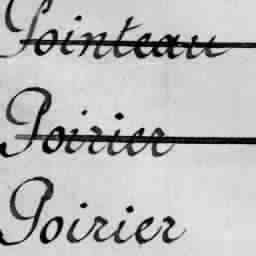 Pointeau
Poirier
Poirier